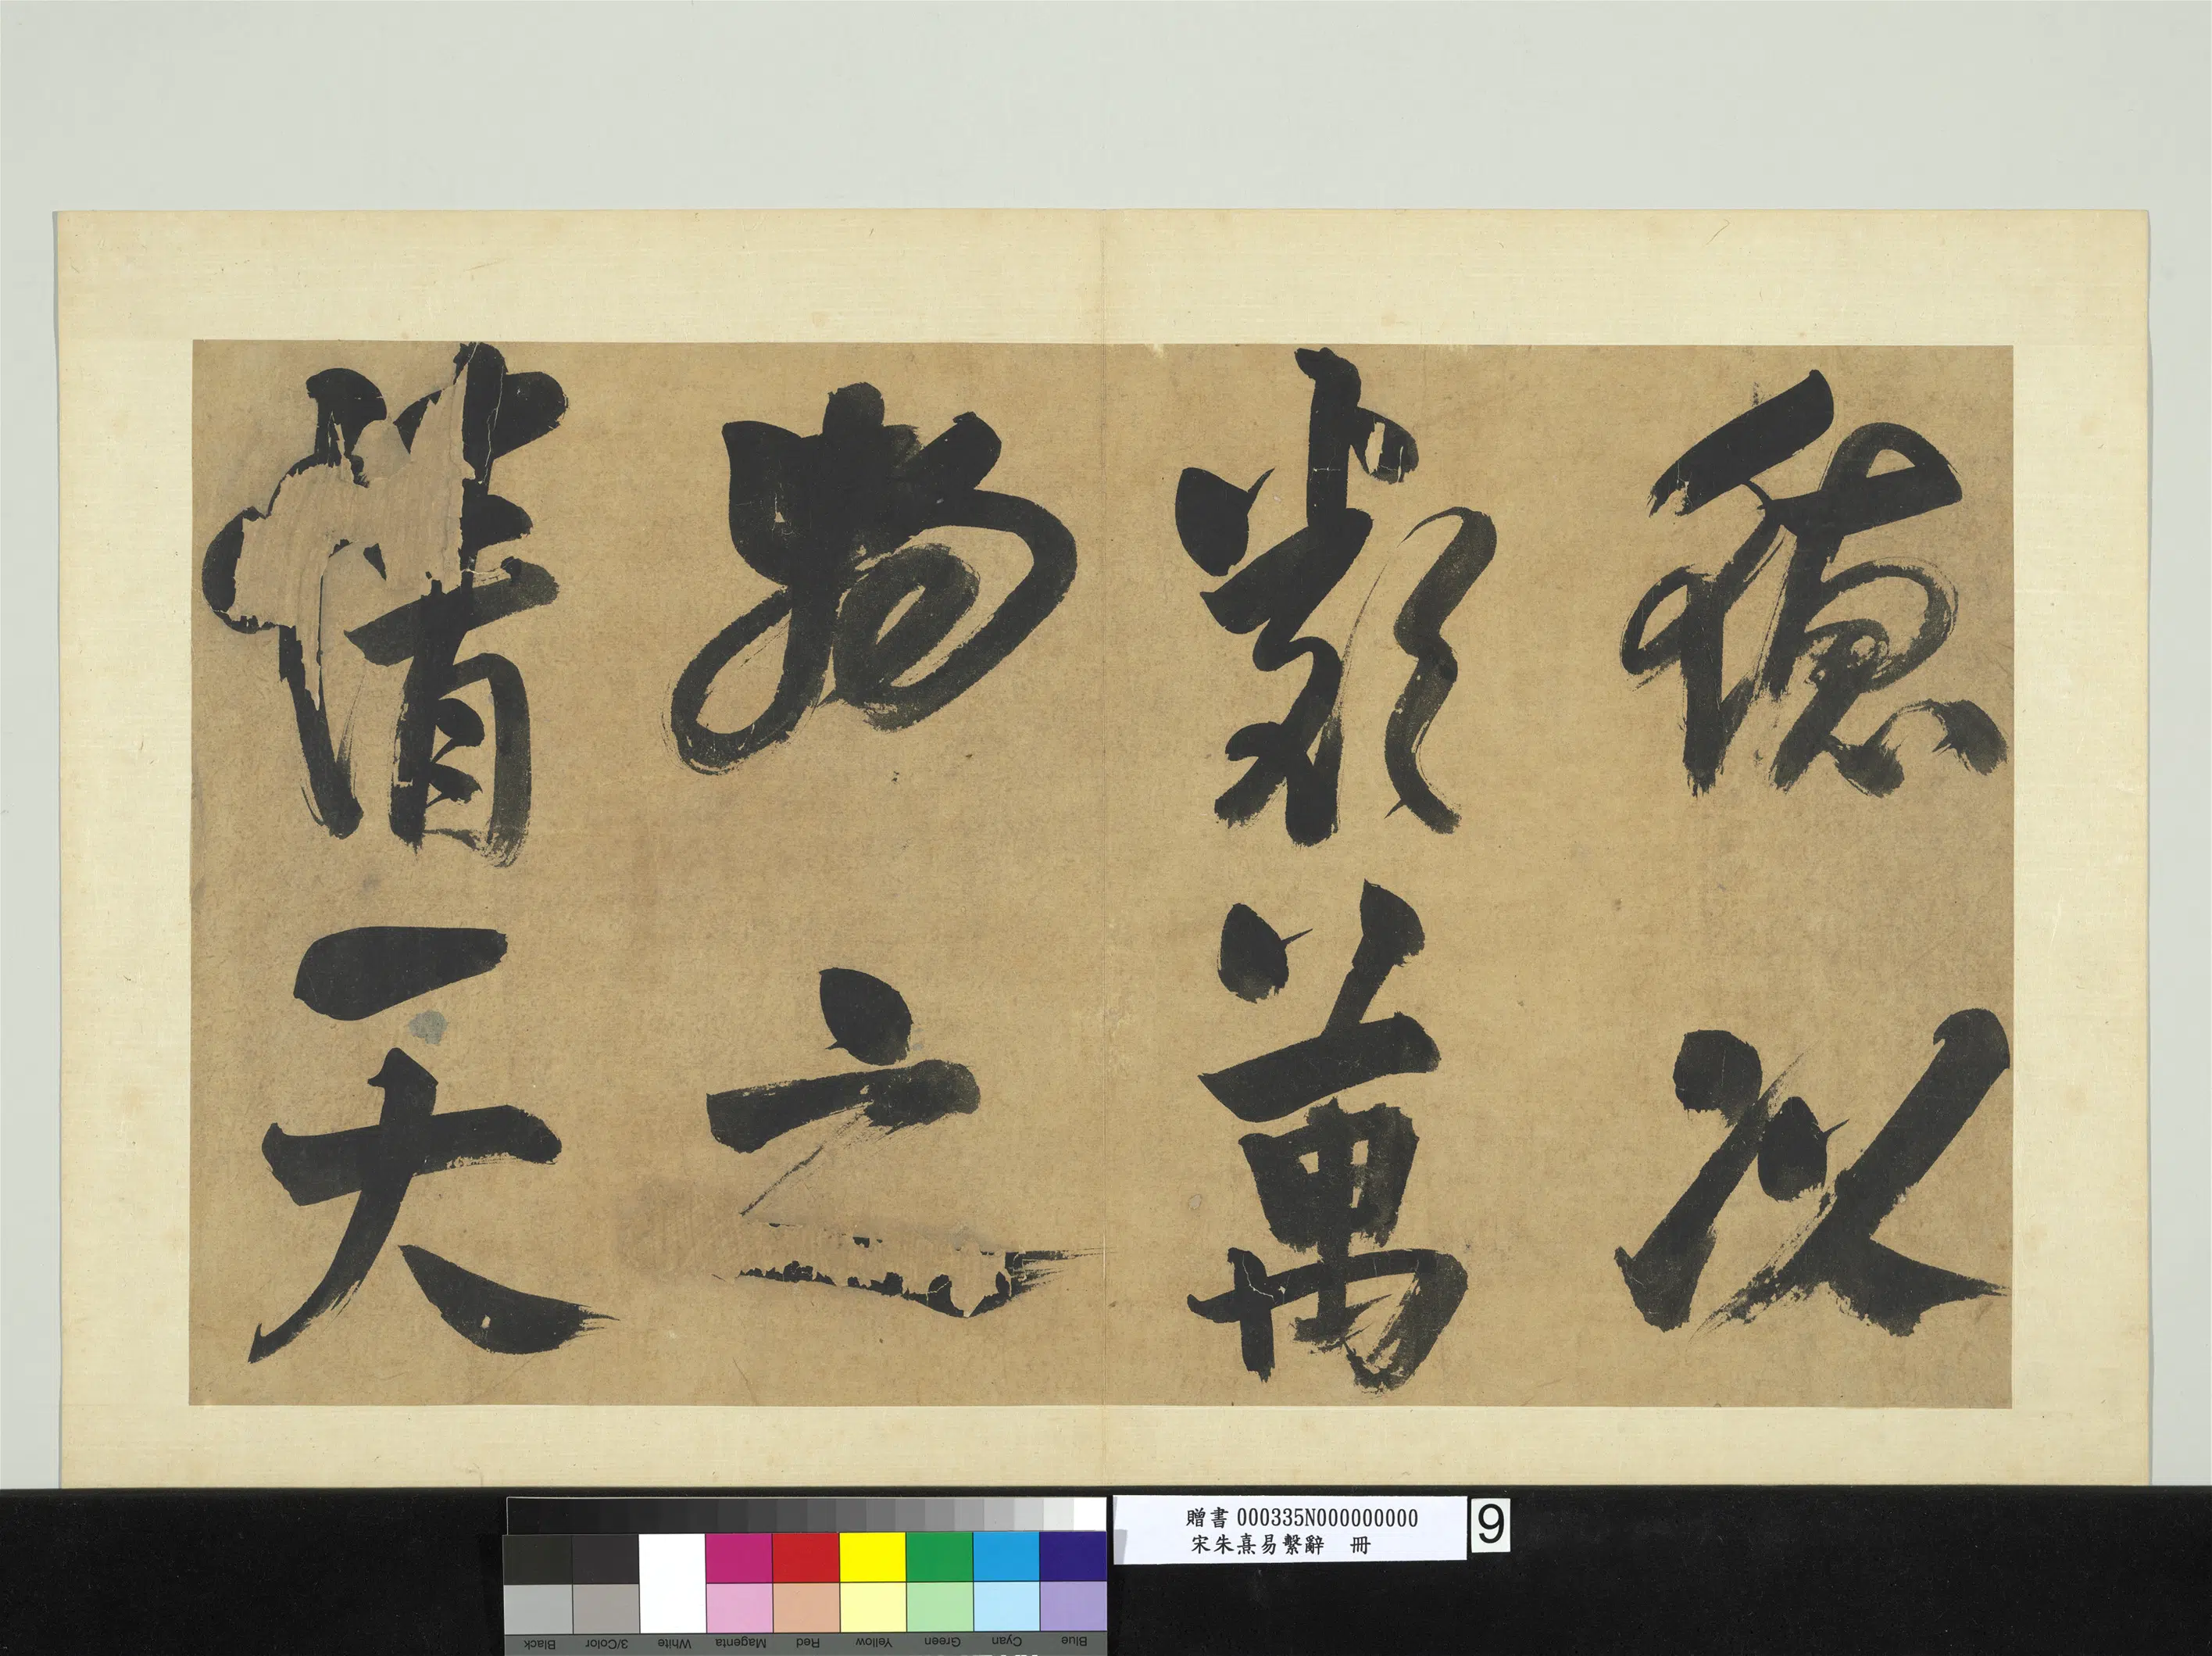 德以
類萬
物之
情一
天
贈書 000335N000000000
宋朱熹易繫辭 冊
9
Black
3/Color
White
Magenta
Red
Yellow
Green
Cyan
Blue